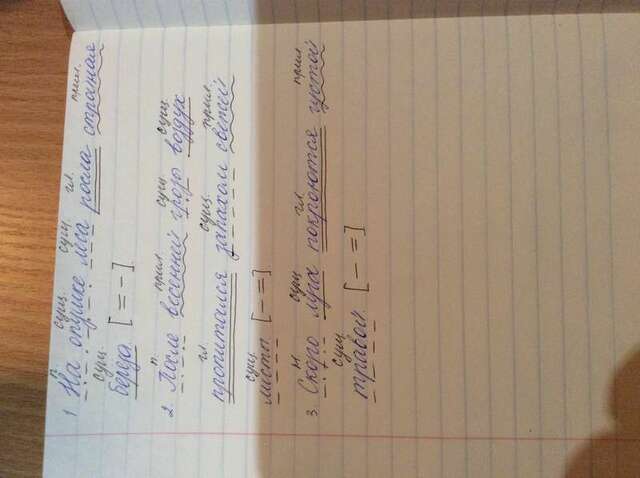 п. сущ. сущ. гл. прил.
1. На опушке леса росла странная
сущ.
берёза. [= -]
п. прил. сущ. сущ.
2. После весенней грозы воздух
гл. сущ. прил.
пропитался запахом свежей
сущ.
листвы [- =].
н сущ гл. прил
3. Скоро луга покроются густой
сущ
травой. [- =]